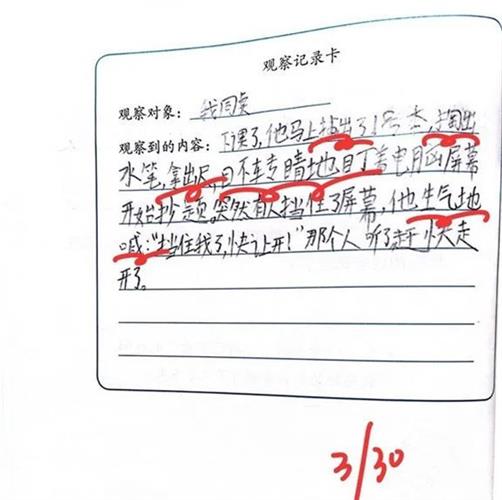 观察记录卡
观察对象：我同桌
观察到的内容：下课了，他马上抽出了1号本，掏出
水笔，拿出尺，目不转睛地盯着电脑屏幕
开始抄题，突然有人挡住了屏幕，他生气地
喊：“挡住我了，快让开！”那个人听了赶快走
开了。
3/30